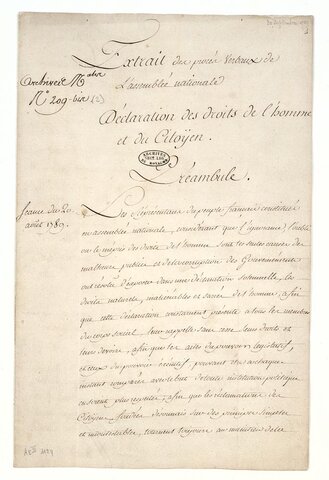 Extrait des procès Verbaux de
L'assemblée nationale
Archives Nales
N° 209 bis (2)
Déclaration des droits de l'homme
et du Citoÿen.
ARCHIVES
DU ROYAUME
Préambule.
Séance du 20
août 1789.
Les Représentans du peuple français constitués
en assemblée nationale, considérant que l'ignorance, l'oubli
ou le mépris des droits de l'homme sont les seules causes des
malheurs publics et de la corruption des Gouvernemens
ont résolu d'exposer dans une déclaration solemnelle, les
droits naturels, inaliénables et sacrés de l'homme, afin
que cette déclaration constamment présente à tous les membres
du corps social, leur rappelle sans cesse leurs droits et
leurs devoirs, afin que les actes du pouvoir législatif,
et ceux du pouvoir exécutif, pouvant être à chaque
instant comparés avec le but de toute institution politique
en soient plus respectés; afin que les réclamations des
Citoyens fondées désormais sur des principes simples
et incontestables, tournent toujours au maintien de la